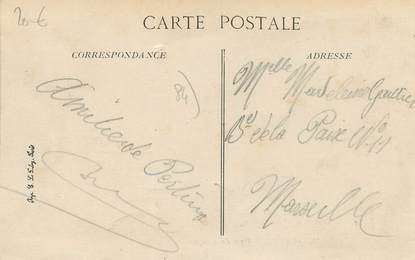 20 €
CARTE POSTALE
CORRESPONDANCE
ADRESSE
84
Amitiés de Pertuis
Melle Madeleine Gautier
Bd de la Paix No 11
Marseille